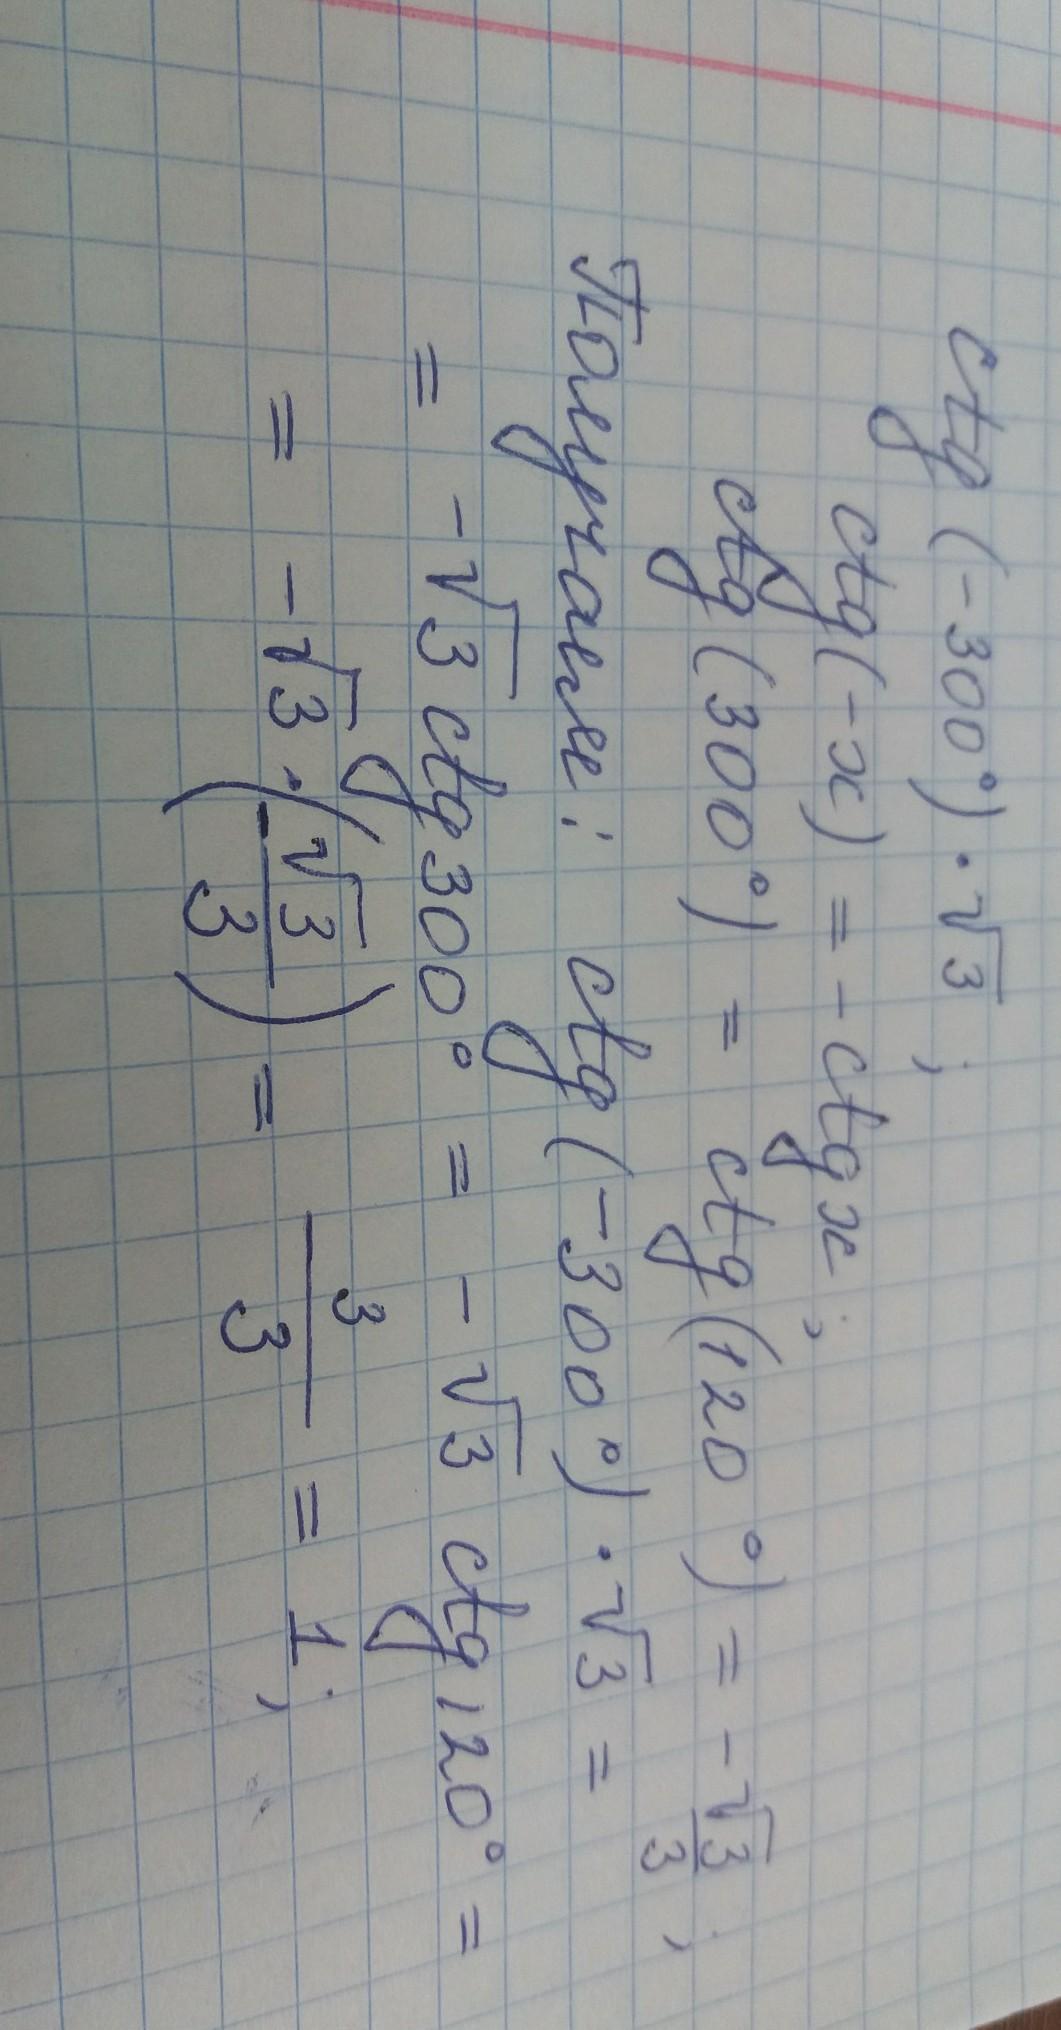 ctg (-300°) · √3 ;
ctg(-x) = - ctg x ;
ctg (300°) = ctg (120°) = - √3/3 ;
Получаем: ctg (-300°) · √3 =
= - √3 ctg 300° = - √3 ctg 120° =
= - √3 · (- √3/3) = 3/3 = 1 ;